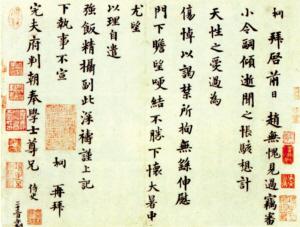 拜啓前日趙無愧見過竊審
小令嗣傾逝聞之悵駭想計
天性之愛過為
傷悼以謁禁所拘無緣伸慰
門下瞻望哽結不勝下懷大暑中
尤望
以理自遣
強飯精攝副此深禱謹上記
下執事不宣 再拜
完夫府判朝奉學士尊兄 侍史